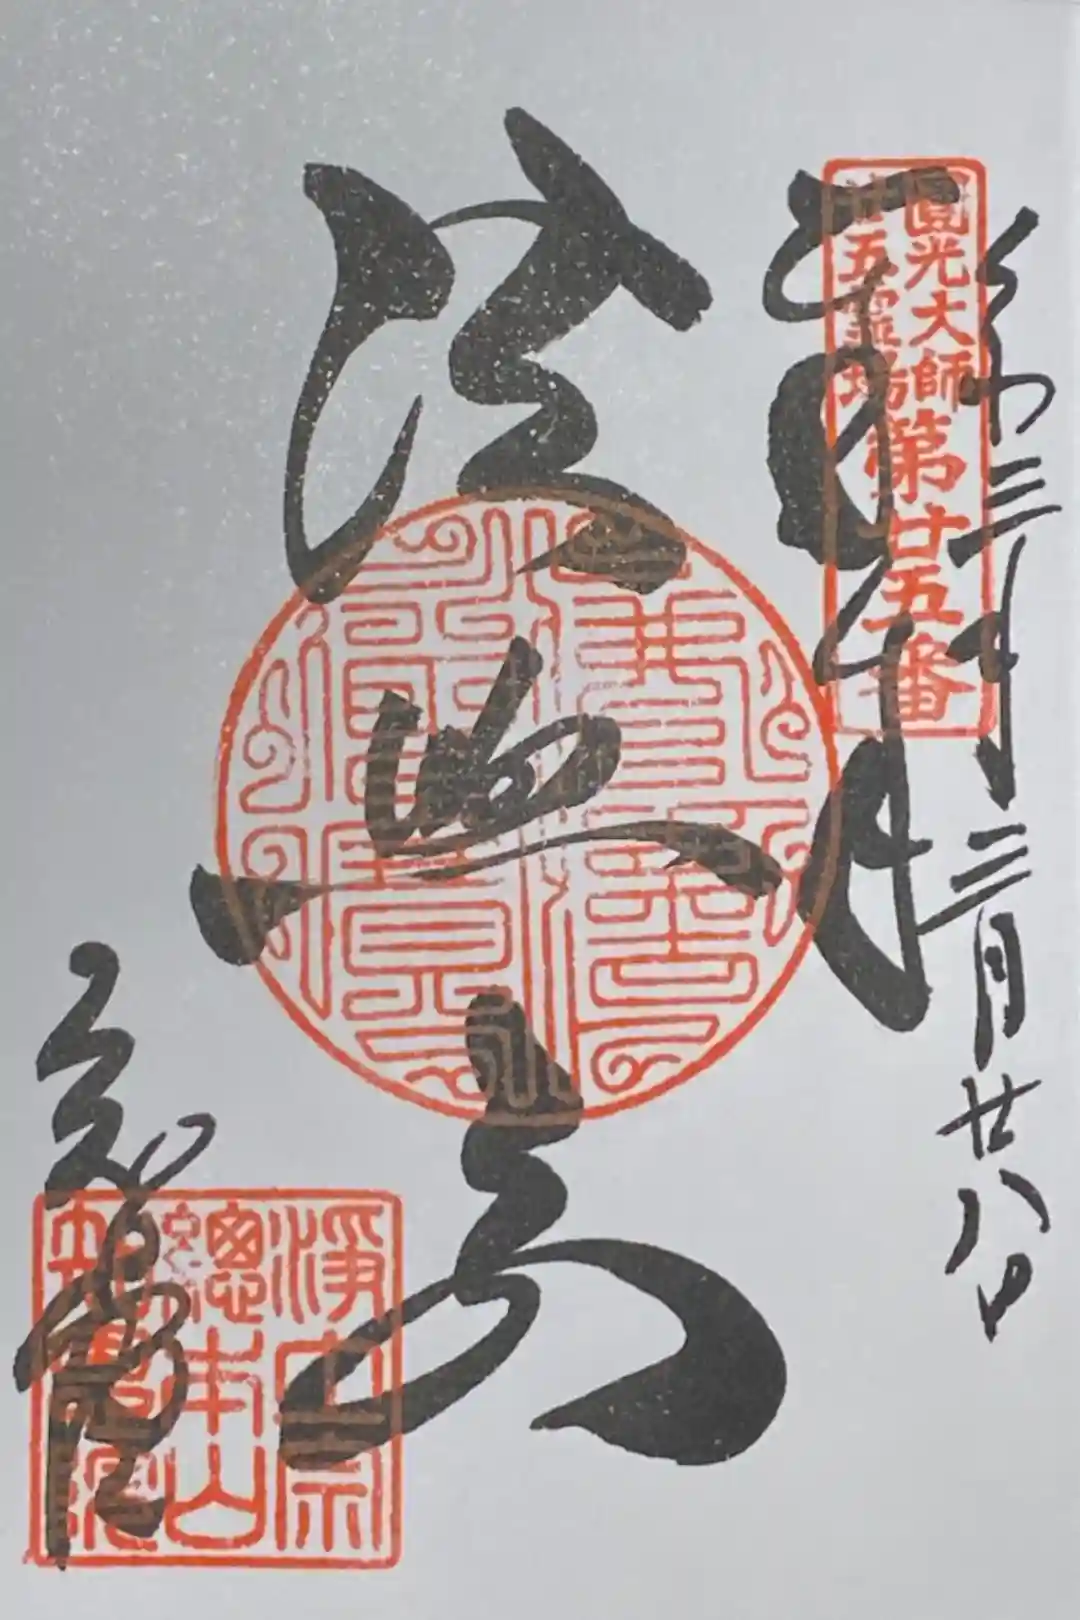 令和三年三月廿八日
圓光大師
廿五霊場
第廿五番
奉拝
法然上人
知恩院
淨土宗
總本山
知恩院